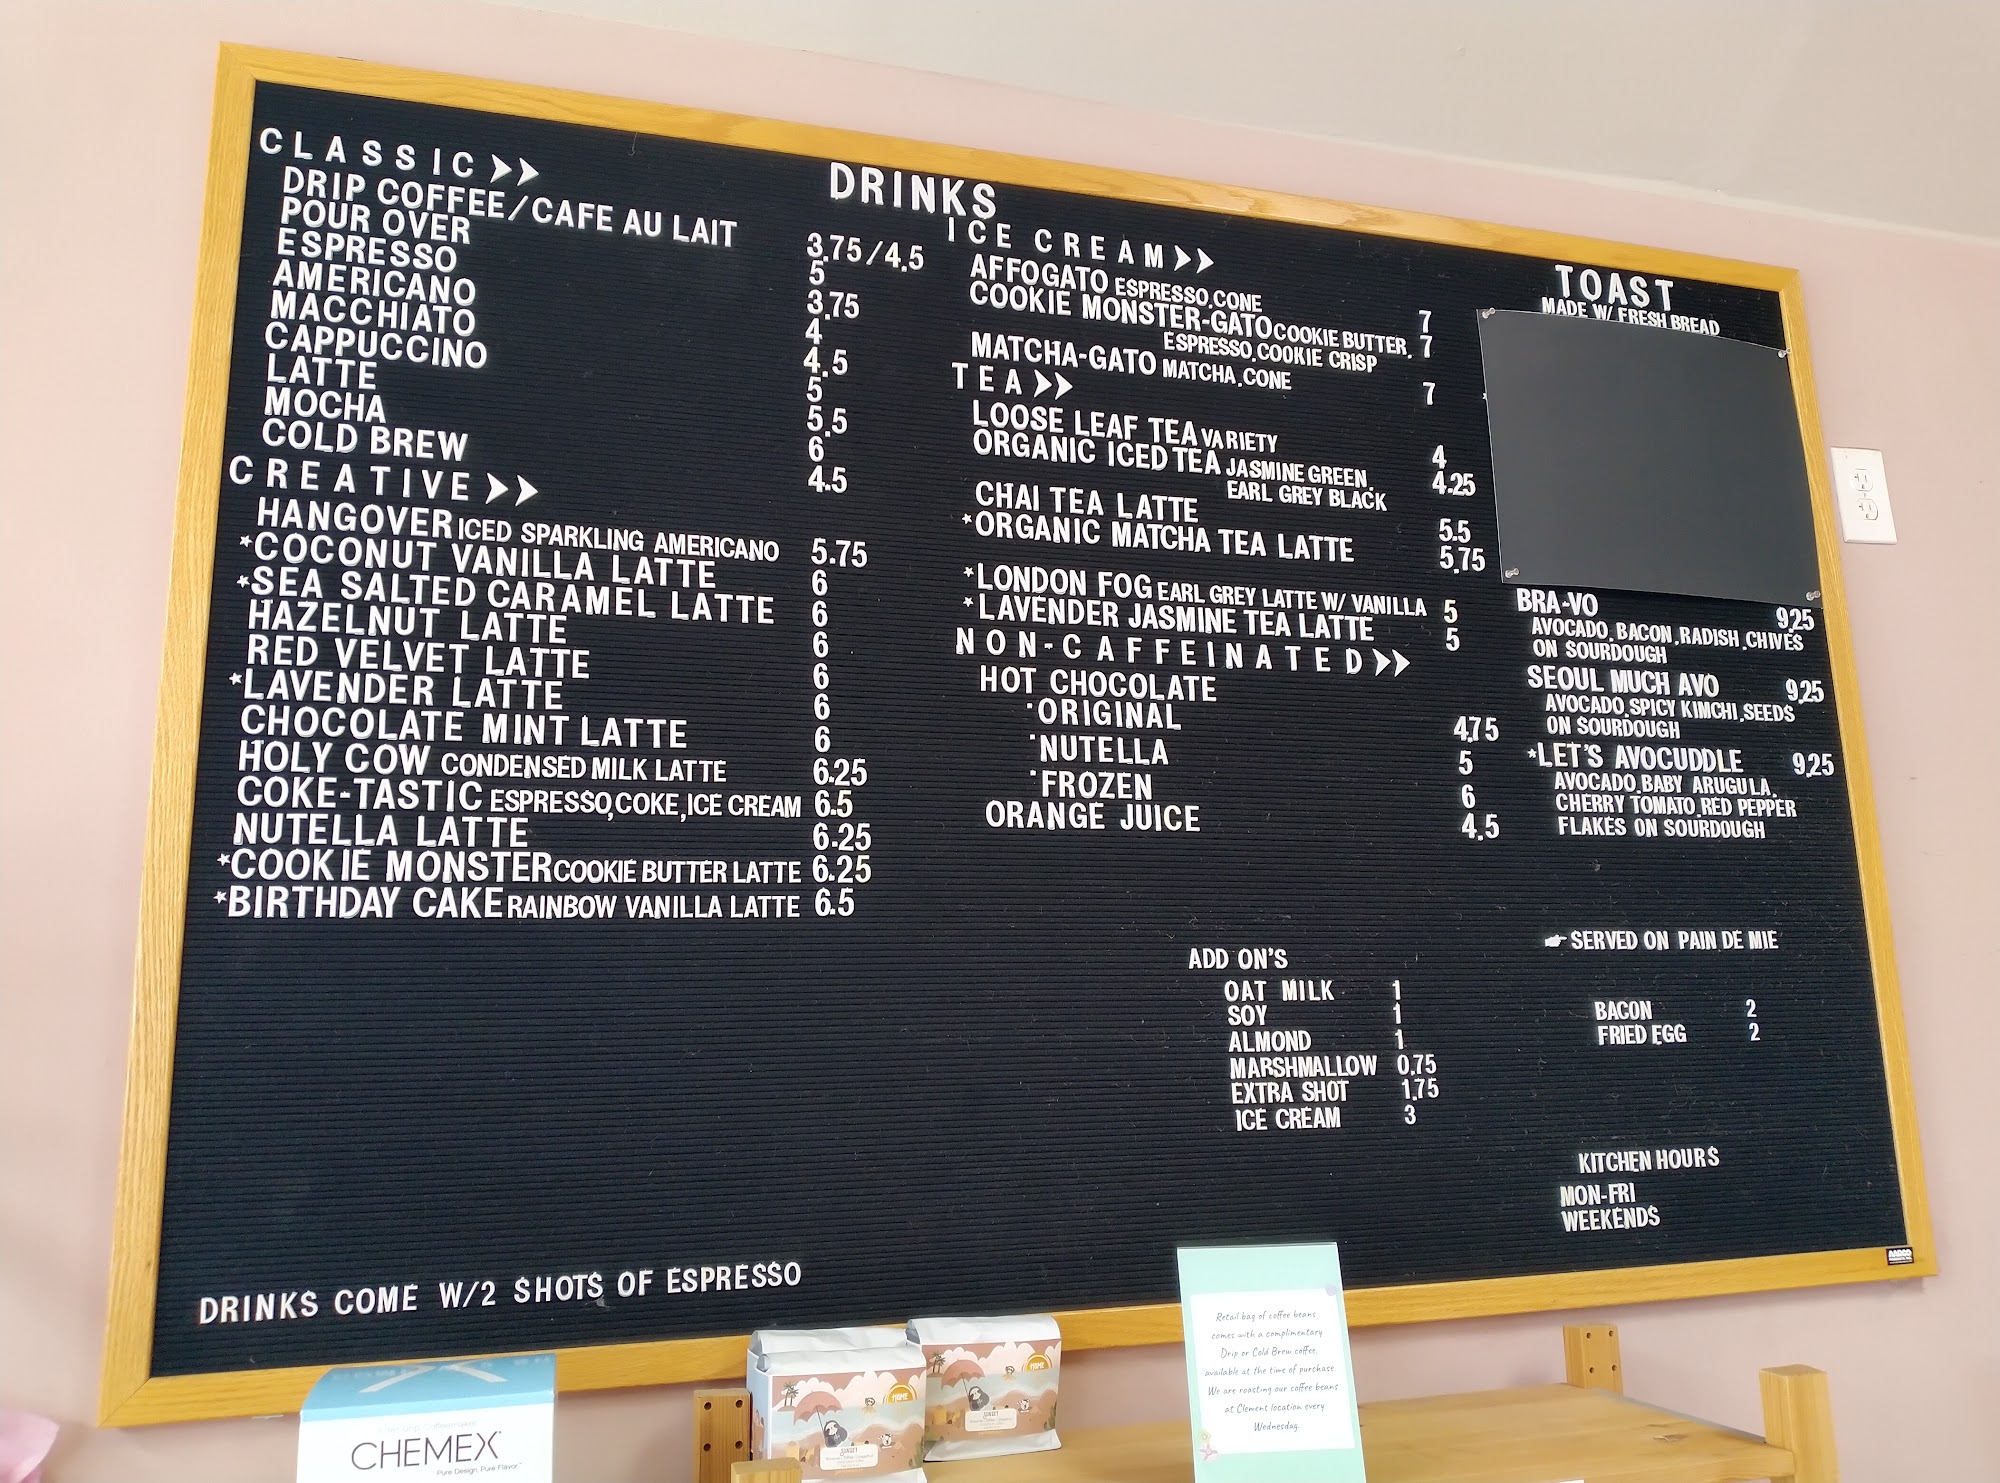 DRINKS
CLASSIC
DRIP COFFEE/CAFE AU LAIT 3.75/4.5
POUR OVER 5
ESPRESSO 3.75
AMERICANO 4
MACCHIATO 4.5
CAPPUCCINO 5
LATTE 5.5
MOCHA 6
COLD BREW 4.5
CREATIVE
HANGOVER ICED SPARKLING AMERICANO 5.75
*COCONUT VANILLA LATTE 6
*SEA SALTED CARAMEL LATTE 6
HAZELNUT LATTE 6
RED VELVET LATTE 6
*LAVENDER LATTE 6
CHOCOLATE MINT LATTE 6
HOLY COW CONDENSED MILK LATTE 6.25
COKE-TASTIC ESPRESSO,COKE,ICE CREAM 6.5
NUTELLA LATTE 6.25
*COOKIE MONSTER COOKIE BUTTER LATTE 6.25
*BIRTHDAY CAKE RAINBOW VANILLA LATTE 6.5
DRINKS COME W/2 SHOTS OF ESPRESSO
ICE CREAM
AFFOGATO ESPRESSO,CONE 7
COOKIE MONSTER-GATO COOKIE BUTTER, 7
ESPRESSO,COOKIE CRISP
MATCHA-GATO MATCHA,CONE 7
TEA
LOOSE LEAF TEA VARIETY 4
ORGANIC ICED TEA JASMINE GREEN, 4.25
EARL GREY BLACK
CHAI TEA LATTE 5.5
*ORGANIC MATCHA TEA LATTE 5.75
*LONDON FOG EARL GREY LATTE W/ VANILLA 5
*LAVENDER JASMINE TEA LATTE 5
NON-CAFFEINATED
HOT CHOCOLATE
·ORIGINAL 4.75
·NUTELLA 5
·FROZEN 6
ORANGE JUICE 4.5
ADD ON'S
OAT MILK 1
SOY 1
ALMOND 1
MARSHMALLOW 0.75
EXTRA SHOT 1.75
ICE CREAM 3
TOAST
MADE W/ FRESH BREAD
BRA-VO 9.25
AVOCADO,BACON,RADISH,CHIVES
ON SOURDOUGH
SEOUL MUCH AVO 9.25
AVOCADO,SPICY KIMCHI,SEEDS
ON SOURDOUGH
*LET'S AVOCUDDLE 9.25
AVOCADO,BABY ARUGULA,
CHERRY TOMATO,RED PEPPER
FLAKES ON SOURDOUGH
SERVED ON PAIN DE MIE
BACON 2
FRIED EGG 2
KITCHEN HOURS
MON-FRI
WEEKENDS
AARCO
CHEMEX
Pure Design. Pure Flavor.
HOME
SUNSET
HOME
SUNSET
Retail bag of coffee beans
comes with a complimentary
Drip or Cold Brew coffee,
available at the time of purchase.
We are roasting our coffee beans
at Clement location every
Wednesday.